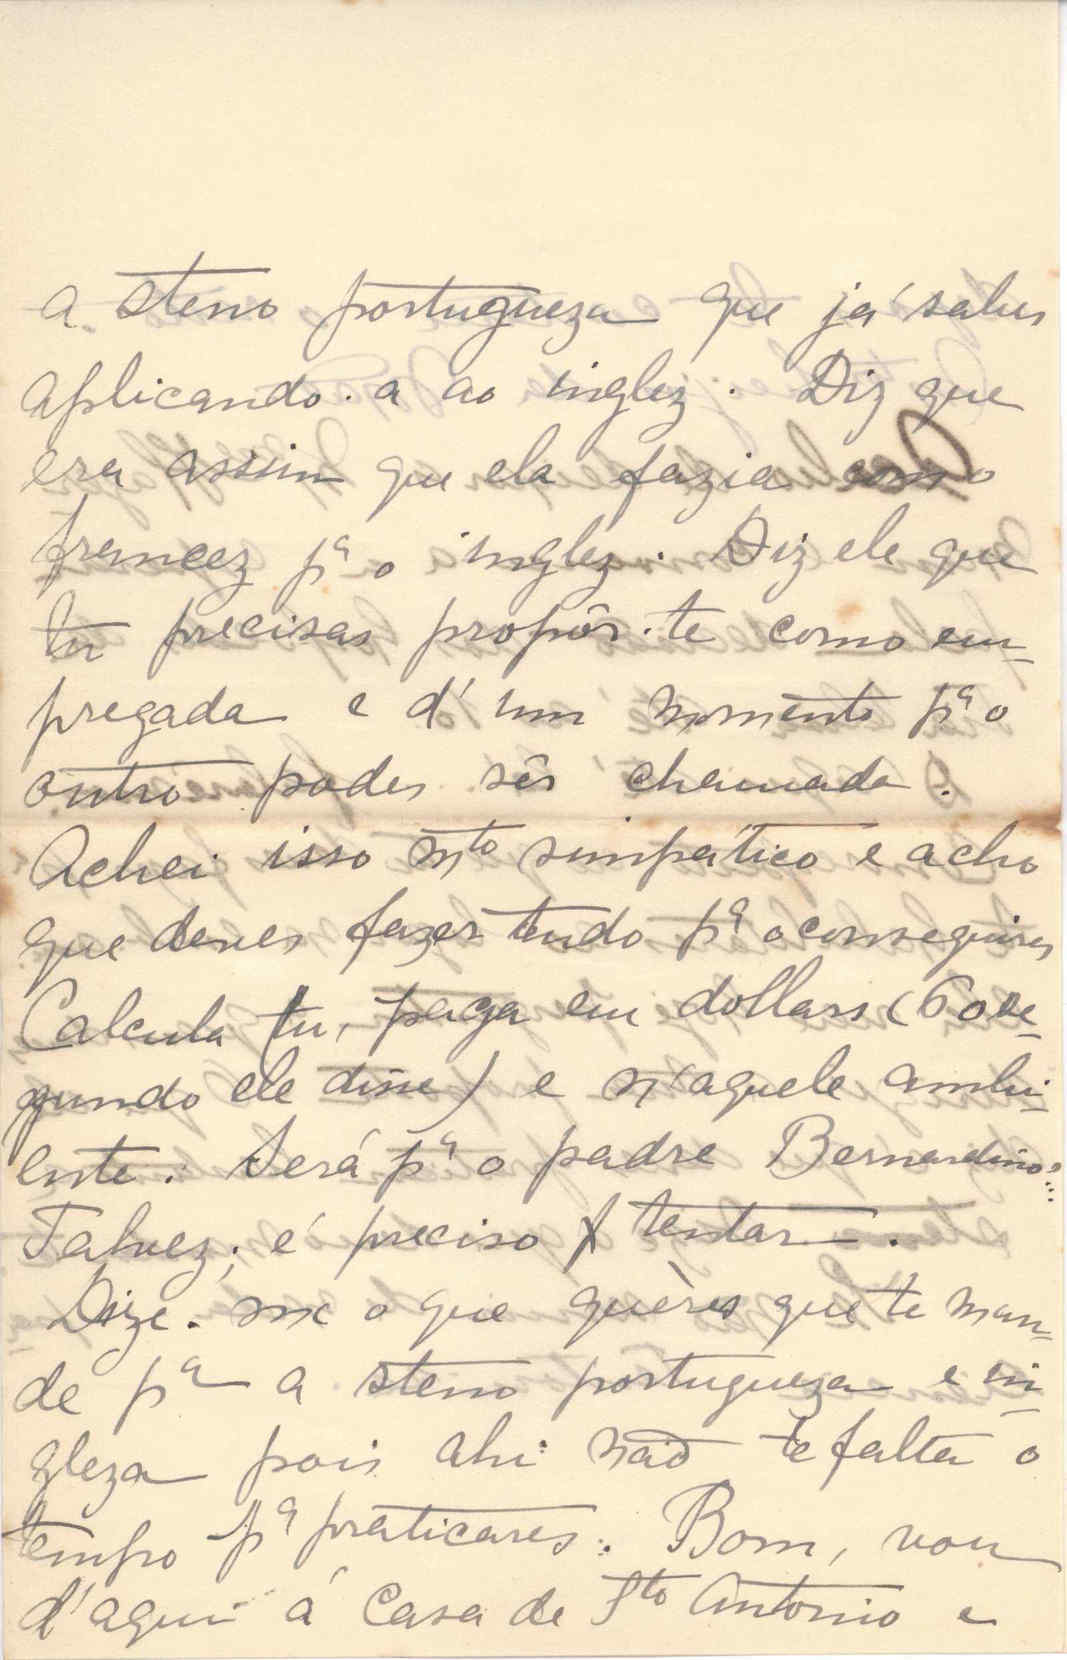 a steno portugueza que já sabes
aplicando-a ao inglez. Diz que
era assim que ela fazia com o
francez pª o inglez. Diz ele que
tu precisas propôr-te como em-
pregada e d'um momento pª o
outro podes sêr chamada.
Achei isso mto simpático e acho
que deves fazer tudo pª o conseguires
Calcula tu, paga em dollars (60 se-
gundo ele disse) e n'aquele ambi-
ente. Será pª o padre Bernardino?...
Talvez; é preciso tentar.
Dize-me o que quères que te man-
de pª a steno portugueza e in-
gleza pois ahi não te falta o
tempo pª praticares. Bom, vou
d'aqui á Casa de Sto Antonio e